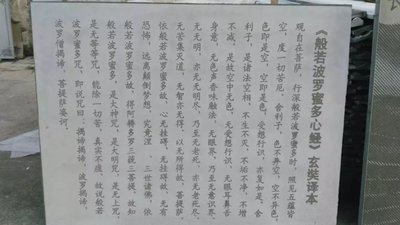 《般若波罗蜜多心经》玄奘译本
观自在菩萨，行深般若波罗蜜多时，照见五蕴皆
空，度一切苦厄。舍利子，色不异空，空不异色，
色即是空，空即是色，受想行识，亦复如是。舍
利子，是诸法空相，不生不灭，不垢不净，不增
不减，是故空中无色，无受想行识，无眼耳鼻舌
身意，无色声香味触法，无眼界，乃至无意识界，
无无明，亦无无明尽，乃至无老死，亦无老死尽，
无苦集灭道，无智亦无得，以无所得故，菩提萨
依般若波罗蜜多故，心无挂碍，无挂碍故，无有
恐怖，远离颠倒梦想，究竟涅 三世诸佛，依
般若波罗蜜多故，得阿耨多罗三藐三菩提，故知
般若波罗蜜多，是大神咒，是大明咒，是无上咒，
是无等等咒，能除一切苦，真实不虚，故说般若
波罗蜜多咒，即说咒曰：揭谛揭谛，波罗揭谛，
波罗僧揭谛，菩提萨婆诃。